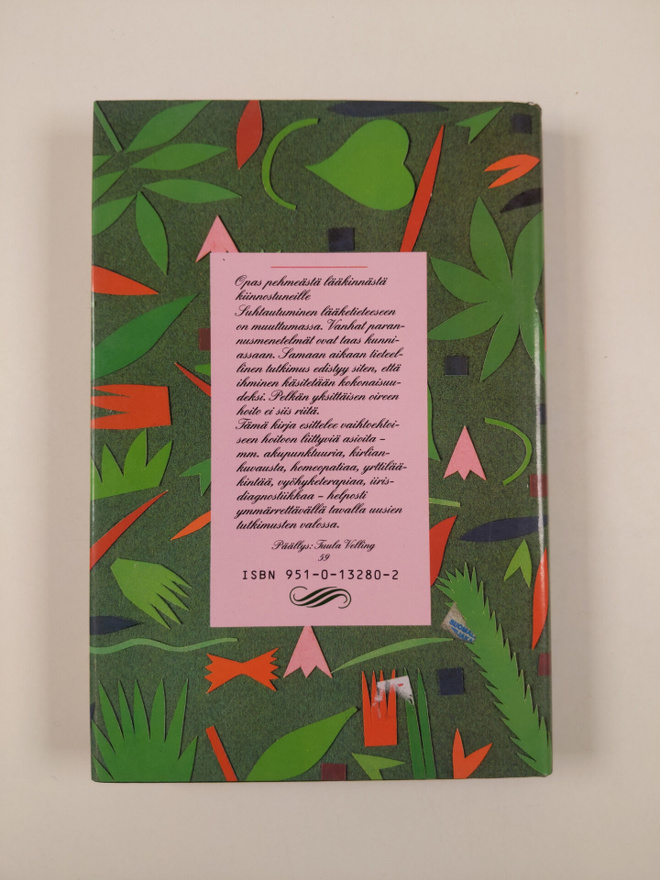 Opas pehmeästä lääkinnästä
kiinnostuneille
Suhtautuminen lääketieteeseen
on muuttumassa. Vanhat paran-
nusmenetelmät ovat taas kunni-
assaan. Samaan aikaan tieteel-
linen tutkimus edistyy siten, että
ihminen käsitetään kokonaisuu-
deksi. Pelkän yksittäisen oireen
hoito ei siis riitä.
Tämä kirja esittelee vaihtoehtoi-
seen hoitoon liittyviä asioita –
mm. akupunktuuria, kirlian-
kuvausta, homeopatiaa, yrttilää-
kintää, vyöhyketerapiaa, iiris-
diagnostiikkaa – helposti
ymmärrettävällä tavalla uusien
tutkimusten valossa.
Päällys: Tuula Velling
59
ISBN 951-0-13280-2